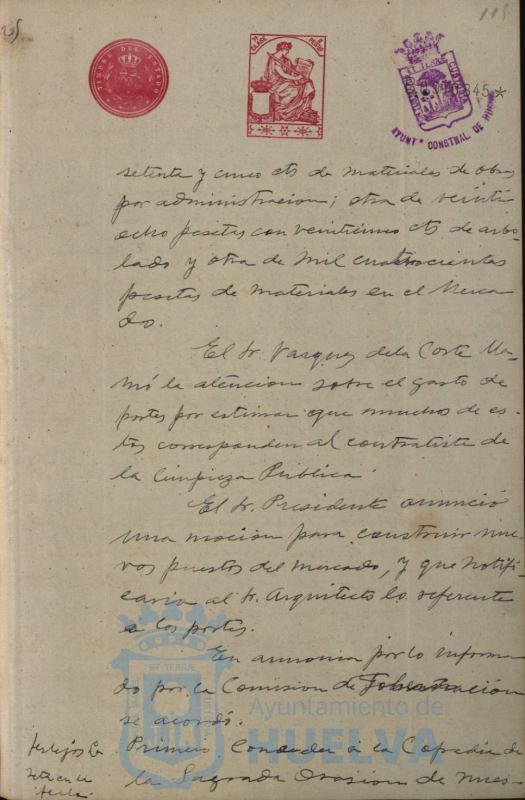 115
TIMBRE DEL ESTADO
CLASE
PESETA
AYUNTº CONSTNAL DE HUELVA
setenta y cinco cts de materiales de obras
por administracion; otra de veinti
ocho pesetas con veinticinco cts de arbo-
lado y otra de mil cuatrocientas
pesetas de materiales en el Merca
do.
El Sr. Vazquez de la Corte lla-
mó la atencion sobre el gasto de
portes por estimar que muchos de es-
tos corresponden al contratista de
la limpieza Publica
El Sr. Presidente anunció
una mocion para construir nue-
vos puestos del mercado, y que notifi-
caria al Sr. Arquitecto lo referente
a los portes.
En armonia por lo informa
do por la Comision de
se acordó.
Primero Conceder á la Cofradia de
la Sagrada Oracion de nues-
Ayuntamiento de
HUELVA